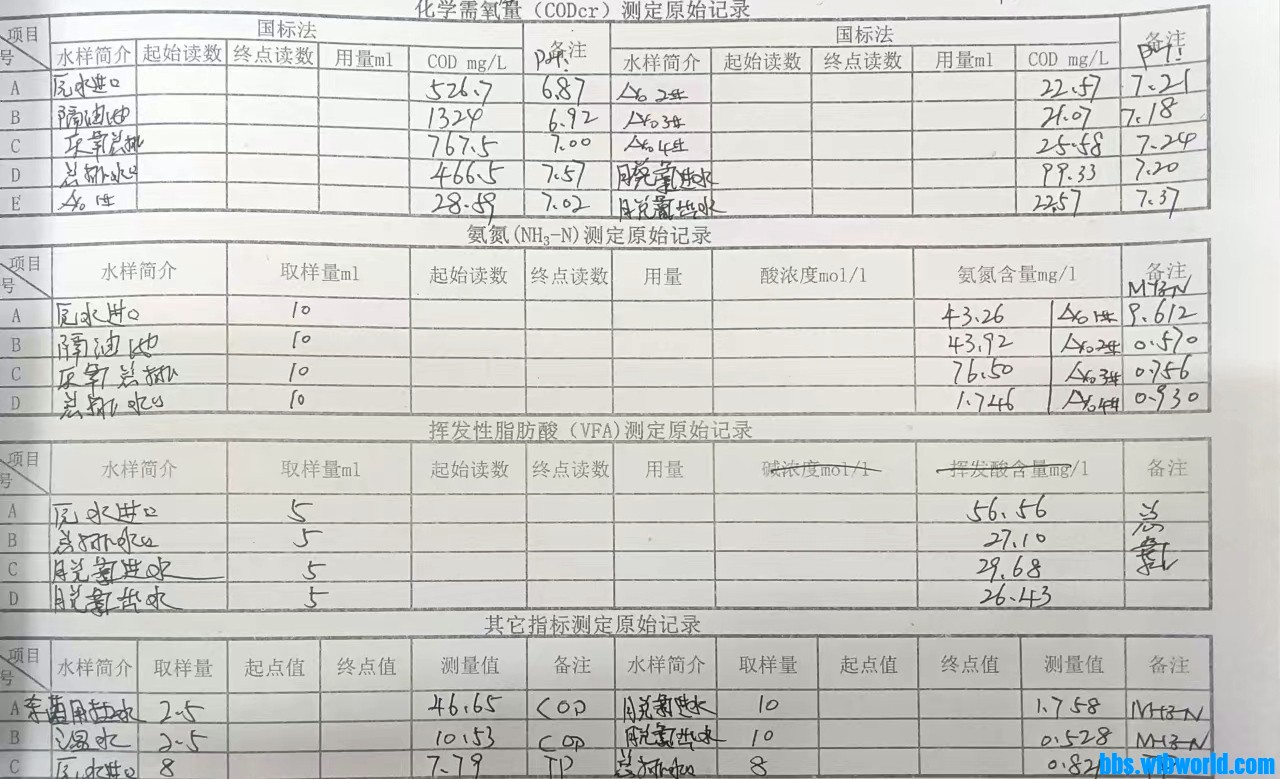 化学需氧量（CODcr）测定原始记录
项目 国标法 备注 国标法 备注
号 水样简介 起始读数 终点读数 用量ml COD mg/L PH: 水样简介 起始读数 终点读数 用量ml COD mg/L PH:
A 原水进口 526.7 6.87 A/O 2# 22.57 7.21
B 隔油池 1324 6.92 A/O 3# 21.07 7.18
C 厌氧总排 767.5 7.00 A/O 4# 25.58 7.24
D 总排水口 466.5 7.57 脱氮进水 99.33 7.20
E A/O 1# 28.59 7.02 脱氮出水 22.57 7.37
氨氮(NH₃-N)测定原始记录
项目 水样简介 取样量ml 起始读数 终点读数 用量 酸浓度mol/l 氨氮含量mg/l 备注
号 NH3-N
A 原水进口 10 43.26 A/O 1# 9.612
B 隔油池 10 43.92 A/O 2# 0.570
C 厌氧总排 10 76.50 A/O 3# 0.756
D 总排水口 10 1.746 A/O 4# 0.930
挥发性脂肪酸（VFA)测定原始记录
项目 水样简介 取样量ml 起始读数 终点读数 用量 碱浓度mol/l 挥发酸含量mg/l 备注
号
A 原水进口 5 56.56 总
B 总排水口 5 27.10 氮
C 脱氮进水 5 29.68
D 脱氮出水 5 26.43
其它指标测定原始记录
项目 水样简介 取样量 起点值 终点值 测量值 备注 水样简介 取样量 起点值 终点值 测量值 备注
号
A 2.5 46.65 COD 脱氮进水 10 1.758 NH3-N
B 水 2.5 10.53 COD 脱氮出水 10 0.528 NH3-N
C 原水进口 8 7.79 TP 总排水口 8 0.82
bbs.wlbworld.com